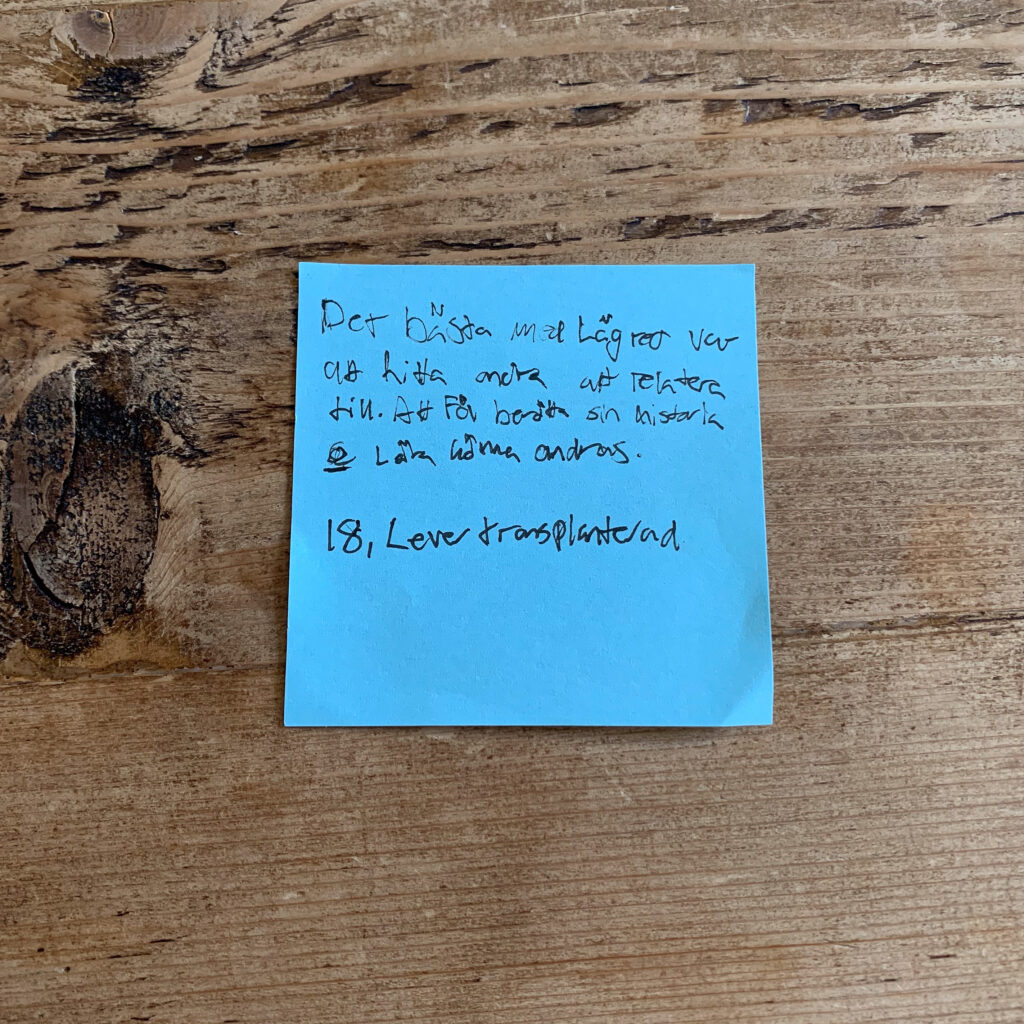 Det bästa med Lägret var
att hitta andra att relatera
till. Att Får berätta sin historia
& Lära känna andras.
18, Levertransplanterad